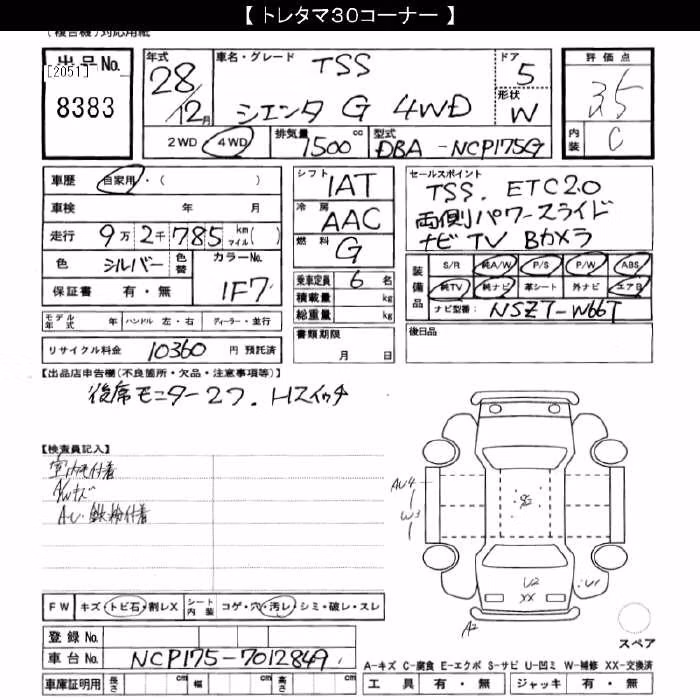 【 トレタマ30コーナー 】
(複合機)対応用紙
出品No.
[2051]
8383
年式
28/12月
車名・グレード
TSS
シエンタ G 4WD
ドア
5
形状
W
評価点
3.5
内装
C
2WD 4WD
排気量 1500 cc
型式 DBA-NCP175G
車歴 自家用・( )
車検 年 月
走行 9万2千785 km マイル( )
色 シルバー 色替
カラーNo. 1F7
保証書 有・無
モデル年式 年 ハンドル 左・右 ディーラー・並行
リサイクル料金 10360 円 預託済
シフト 1AT
冷房 AAC
燃料 G
乗車定員 6 名
積載量 kg
総重量 kg
書類期限
月 日
セールスポイント
TSS. ETC2.0
両側パワースライド
ナビ TV Bカメラ
装備品
S/R 純A/W P/S P/W ABS
純TV 純ナビ 革シート 外ナビ エアB
ナビ型番: NSZT-W66T
後日品
【出品店申告欄(不良箇所・欠品・注意事項等)】
後席モニター2ヶ. Hスイッチ
【検査員記入】
AWキズ
AU4
W3
U2
XX
U1
A2
FW キズ・トビ石・割レX
シート内装 コゲ・穴・汚レ・シミ・破レ・スレ
登録No.
車台No. NCP175-7012849
車庫証明用 長さ cm 幅 cm 高さ cm
スペア
A-キズ C-腐食 E-エクボ S-サビ U-凹ミ W-補修 XX-交換済
工具 有・無 ジャッキ 有・無